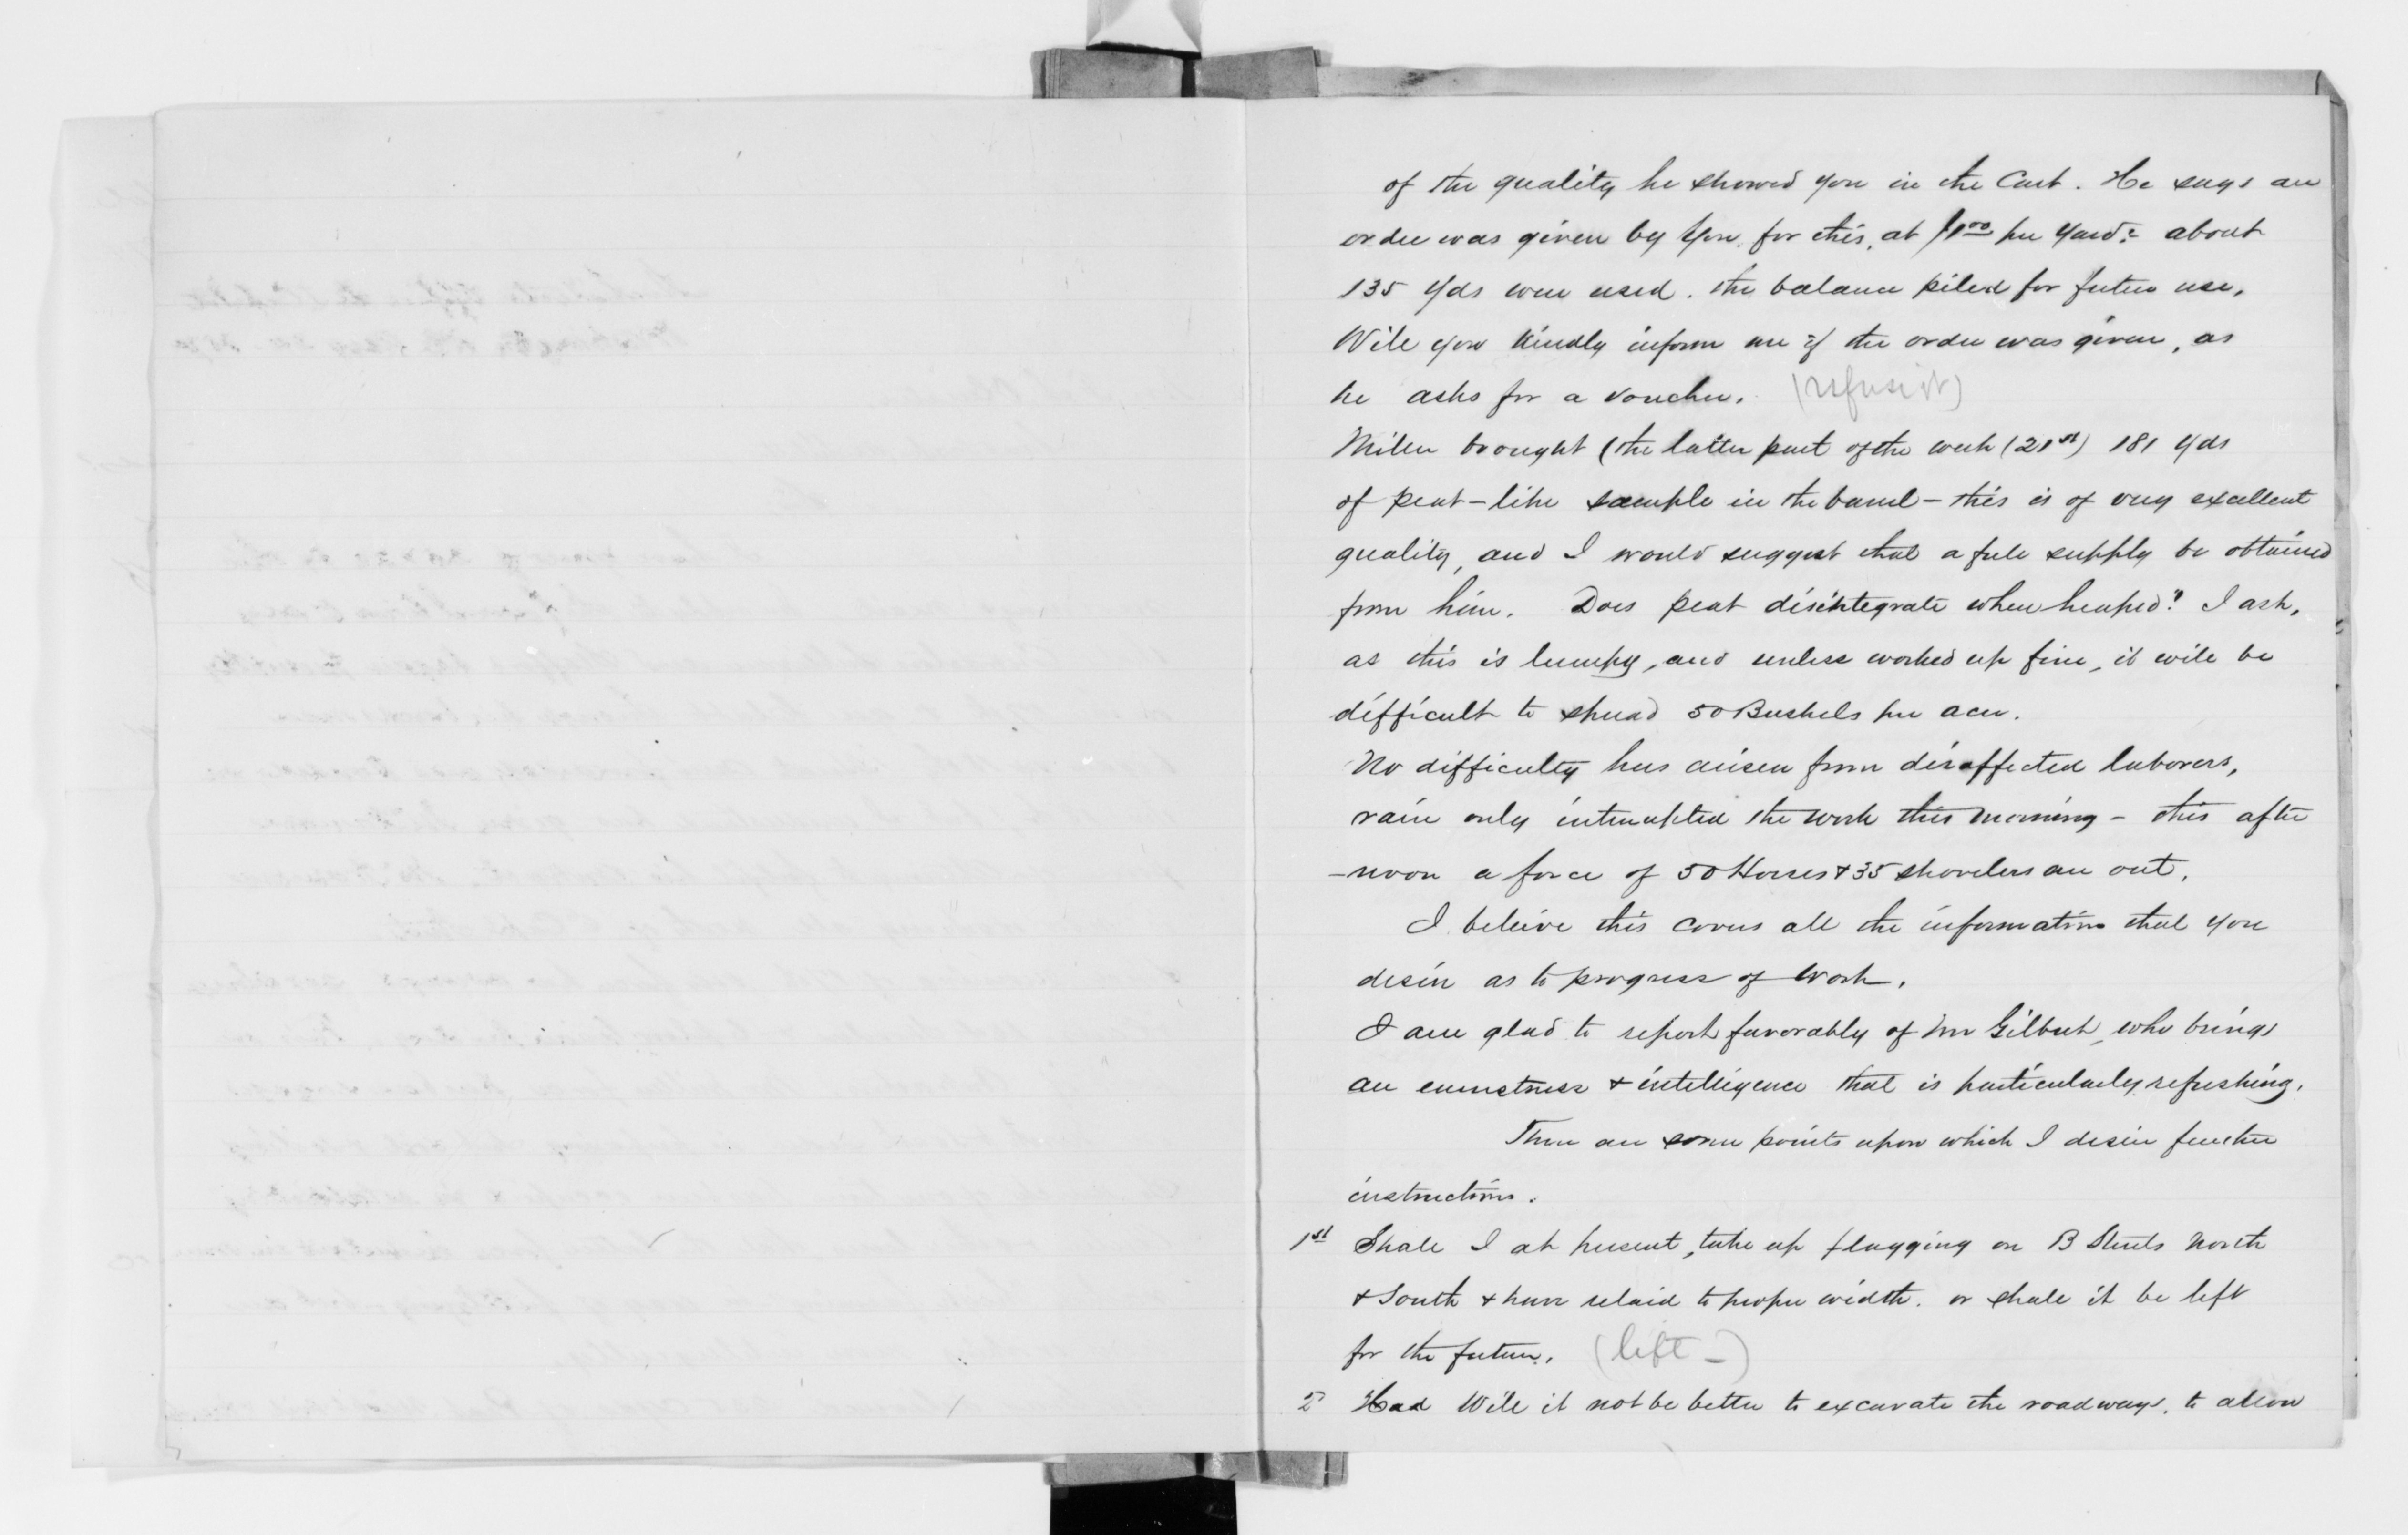 of the quality he showed you in the Cart. He says an
order was given by you for this, at $1.00 per yard: about
135 yds were used. the balance piled for future use,
Will you kindly inform me if the order was given, as
he asks for a voucher. (refuse it)
Miller brought (the latter part of the week (21st) 181 yds
of peat - like sample in the barrel - this is of very excellent
quality, and I would suggest that a full supply be obtained
from him. Does peat disintegrate when heaped? I ask,
as this is lumpy, and unless worked up fine, it will be
difficult to spread 50 Bushels per acre.
No difficulty has arisen from disaffected laborers,
rain only interrupted the work this morning - this after
-noon a force of 50 Horses & 35 shovelers are out.
I beleive this covers all the information that you
desire as to progress of work.
I am glad to report favorably of Mr Gilbert, who brings
an earnestness & intelligence that is particularly refreshing.
There are some points upon which I desire further
instructions.
1st Shall I at present, take up flagging on B Streets North
& South & have relaid to proper width. or shall it be left
for the future. (left -)
2d Had Will it not be better to excavate the roadways, to allow